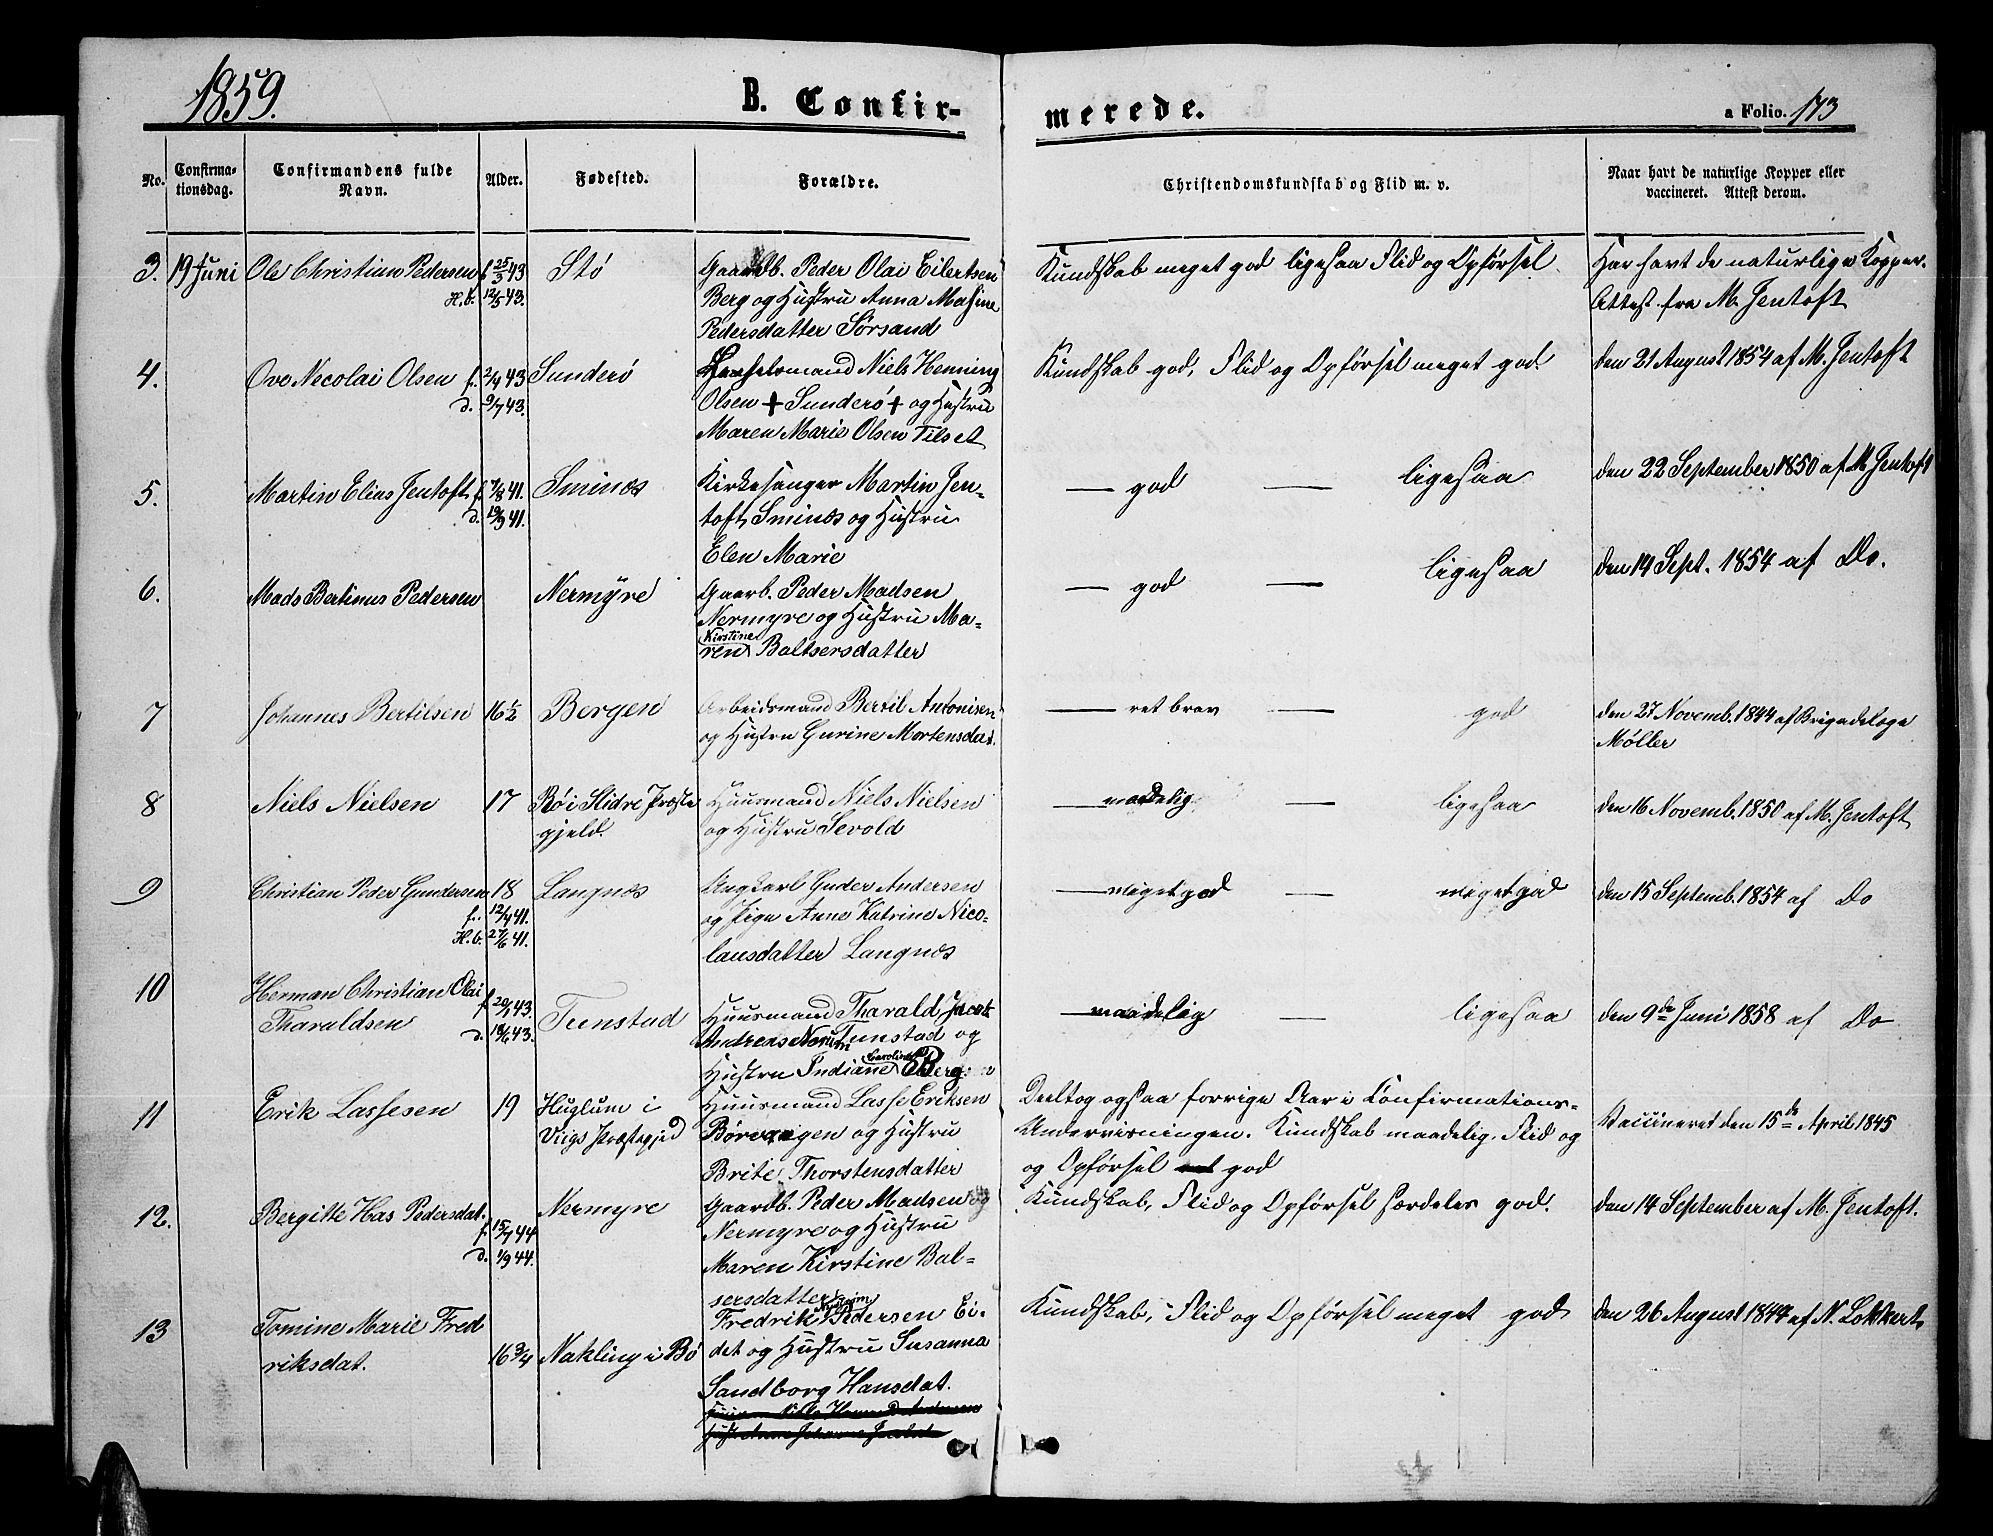 1859.
B. Confir-
merede.
a Folio. 173
No.
Confirma-
tionsdag.
Confirmandens fulde
Navn.
Alder.
Fødested.
Forældre.
Christendomskundskab og Flid m. v.
Naar havt de naturlige Kopper eller
vaccineret. Attest derom.
3. 19 Juni Ole Christian Pedersen f. 25/3 43 Stø
H.b. 12/5 43.
Gaardb. Peder Olai Eilertsen
Berg og Hustru Anna Masine
Pedersdatter Sørsand
Kundskab meget god ligesaa Flid og Opførsel.
Har havt de naturlige Kopper.
Attest fra M. Jentoft
4. Ove Necolai Olsen f. 2/4 43 Sunderø
d. 9/7 43.
Niels Henning
Olsen + Sunderø + og Hustru
Maren Marie Olsen Tilset
Kundskab god, Flid og Opførsel meget god.
den 21 August 1854 af M. Jentoft
5. Martin Elias Jentoft f. 7/8 41. Sminæs
d. 19/9 41.
Kirkesanger Martin Jen-
toft Sminæs og Hustru
Elen Marie
— god — ligesaa
den 22 September 1850 af M. Jentoft
6. Mads Bertinus Pedersen Nermyre
Gaarb. Peder Madsen
Nermyre og Hustru Ma-
Kirstine
ren Baltsersdatter
— god — ligesaa
den 14 Sept. 1854 af Do.
7 Johannes Bertilsen 16 1/2 Bergen
Arbeidsmand Bertil Antonisen
og Hustru Gurine Mortensdat.
— ret brav — god
den 27 Novemb. 1844 af Brigadelæge
Møller
8 Niels Nielsen 17 Bø i Slidre Præste
gjeld.
Huusmand Niels Nielsen
og Hustru Sevold
— maadelig — ligesaa
den 16 Novemb. 1850 af M. Jentoft
9 Christian Peder Gundersen 18 Langnæs
f. 12/4 41.
H.b. 27/6 41.
Ungkarl Guder Andersen
og Pige Anne Katrine Nico-
lausdatter Langnæs
— meget god — meget god
den 15 Septemb. 1854 af Do
10 Herman Christian Olai
Tharaldsen f. 20/1 43. Tunstad
d. 18/6 43.
Huusmand Tharald Jacob
Andreas Norum Tunstad og
Caroline
Hustru Indiane Berg
— maadelig — ligesaa
den 9de Juni 1858 af Do
11 Erik Lassesen 19 Huglum i
Viigs Præstegjeld
Huusmand Lasse Eriksen
Børøvaagen og Hustru
Brite Thorstensdatter
Deeltog ogsaa forrige Aar i Confirmations-
Undervisningen. Kundskab maadelig. Flid og
og Opførsel god
Vaccineret den 15de April 1845
12. Bergitte Has Pedersdat. Nermyre
f. 15/7 44
d. 1/9 44.
Gaardb. Peder Madsen og
Nermyre og Hustru
Maren Kirstine Bal-
sersdatter
Kundskab, Flid og Opførsel særdeles god.
den 14 September af M. Jentoft.
13 Tomine Marie Fred
riksdat. 16 3/4 Nakling i Bø
Fredrik Pedersen Ei-
det og Hustru Susanna
Sandborg Hansdat.
Kundskab, Flid og Opførsel meget god
den 26 August 1844 af N. Lokkert